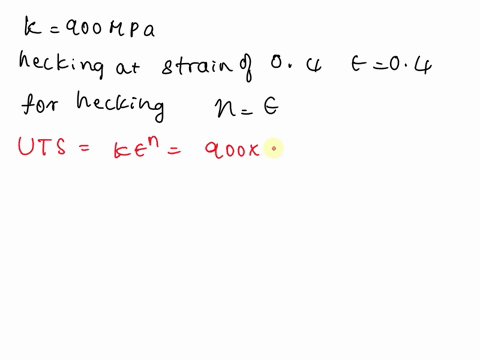 K = 900 MPa
necking at strain of 0.4 ϵ = 0.4
for necking n = ϵ
UTS = Kϵⁿ = 900x